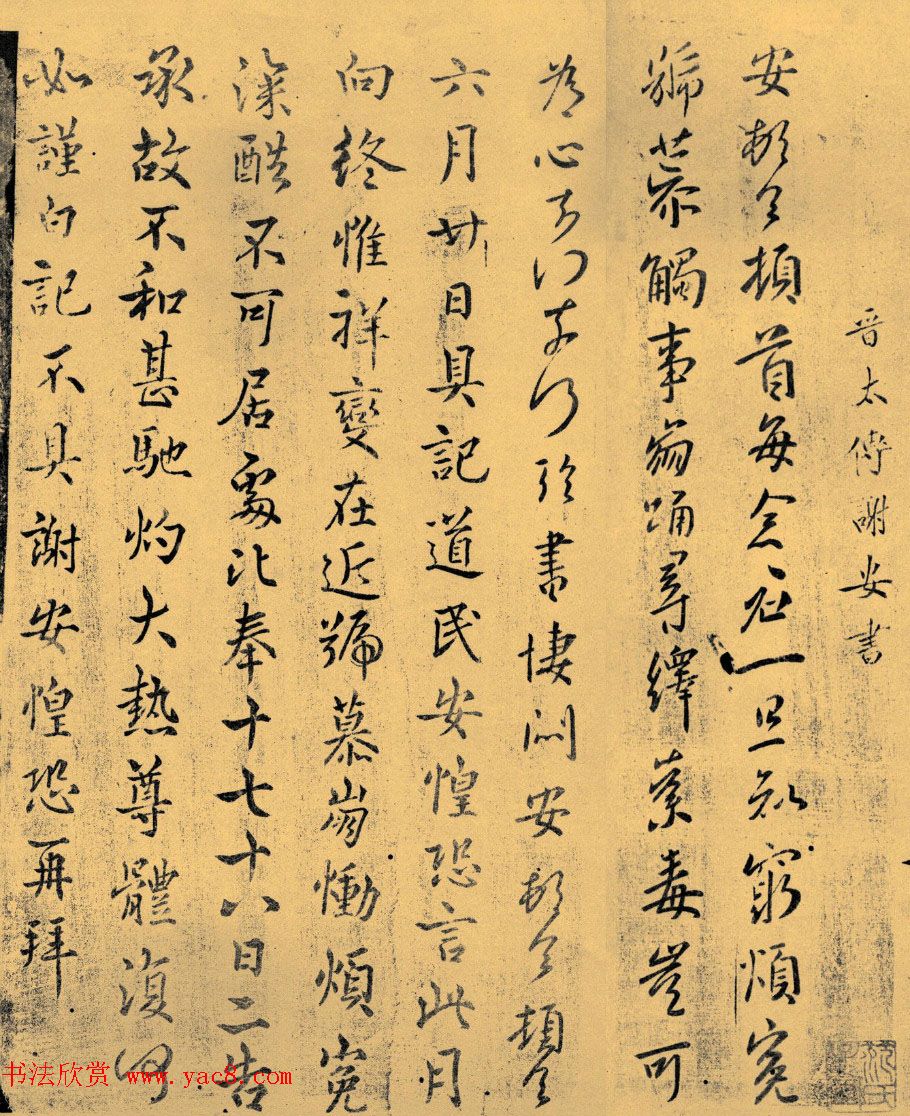 晉太傅謝安書
安頓首頓首每念君一旦知窮煩冤
號慕觸事崩踊尋繹荼毒豈可
為心奈何奈何臨書悽悶安頓首頓首
六月廿日具記道民安惶恐言此月
向終惟祥變在近號慕崩慟煩冤
深酷不可居處比奉十七十八日二告
承故不和甚馳灼大熱尊體復何
如謹白記不具謝安惶恐再拜
书法欣赏 www.yac8.com